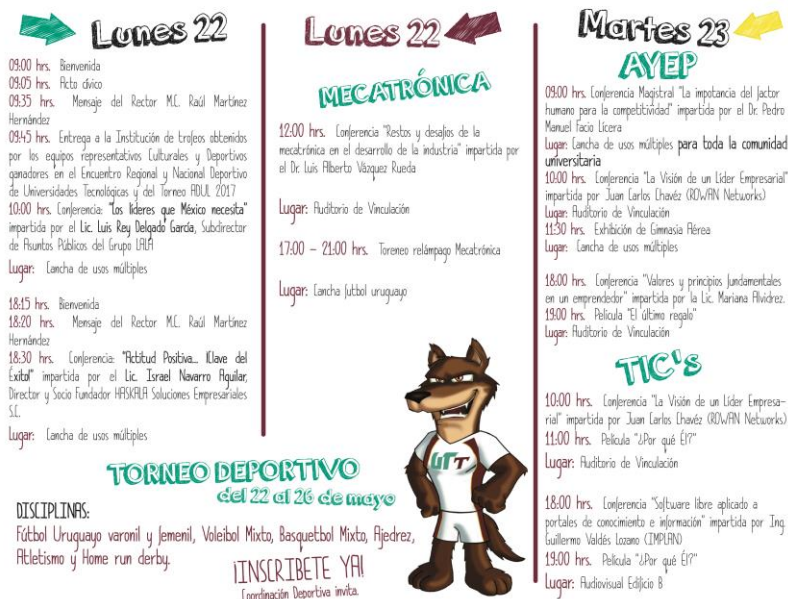 Lunes 22
09:00 hrs. Bienvenida
09:05 hrs. Acto cívico
09:35 hrs. Mensaje del Rector M.C. Raúl Martínez
Hernández
09:45 hrs. Entrega a la Institución de trofeos obtenidos
por los equipos representativos Culturales y Deportivos
ganadores en el Encuentro Regional y Nacional Deportivo
de Universidades Tecnológicas y del Torneo ADUL 2017
10:00 hrs. Conferencia: "Los líderes que México necesita"
impartida por el Lic. Luis Rey Delgado García, Subdirector
de Asuntos Públicos del Grupo LALA
Lugar: Cancha de usos múltiples
18:15 hrs. Bienvenida
18:20 hrs. Mensaje del Rector M.C. Raúl Martínez
Hernández
18:30 hrs. Conferencia: "Actitud Positiva... ¡Clave del
Éxito!" impartida por el Lic. Israel Navarro Aguilar,
Director y Socio Fundador HASKALA Soluciones Empresariales
S.C.
Lugar: Cancha de usos múltiples
Lunes 22
MECATRÓNICA
12:00 hrs. Conferencia "Restos y desafíos de la
mecatrónica en el desarrollo de la industria" impartida por
el Dr. Luis Alberto Vázquez Rueda
Lugar: Auditorio de Vinculación
17:00 – 21:00 hrs. Toreneo relámpago Mecatrónica
Lugar: Cancha futbol uruguayo
Martes 23
AYEP
09:00 hrs. Conferencia Magistral "La impotancia del factor
humano para la competitividad" impartida por el Dr. Pedro
Manuel Facio Licera
Lugar: Cancha de usos múltiples para toda la comunidad
universitaria
10:00 hrs. Conferencia "La Visión de un Líder Empresarial"
impartida por Juan Carlos Chavéz (ROWAN Networks)
Lugar: Auditorio de Vinculación
11:30 hrs. Exhibición de Gimnasia Aérea
Lugar: Cancha de usos múltiples
18:00 hrs. Conferencia "Valores y principios fundamentales
en un emprendedor" impartida por la Lic. Mariana Alvidrez.
19:00 hrs. Película "El último regalo"
Lugar: Auditorio de Vinculación
TIC's
10:00 hrs. Conferencia "La Visión de un Líder Empresa-
rial" impartida por Juan Carlos Chavéz (ROWAN Networks)
11:00 hrs. Película "¿Por qué Él?"
Lugar: Auditorio de Vinculación
18:00 hrs. Conferencia "Software libre aplicado a
portales de conocimiento e información" impartida por Ing.
Guillermo Valdés Lozano (IMPLAN)
19:00 hrs. Película "¿Por qué Él?"
Lugar: Audiovisual Edificio B
TORNEO DEPORTIVO
del 22 al 26 de mayo
DISCIPLINAS:
Fútbol Uruguayo varonil y femenil, Voleibol Mixto, Basquetbol Mixto, Ajedrez,
Atletismo y Home run derby.
¡INSCRIBETE YA!
Coordinación Deportiva invita.
UTT